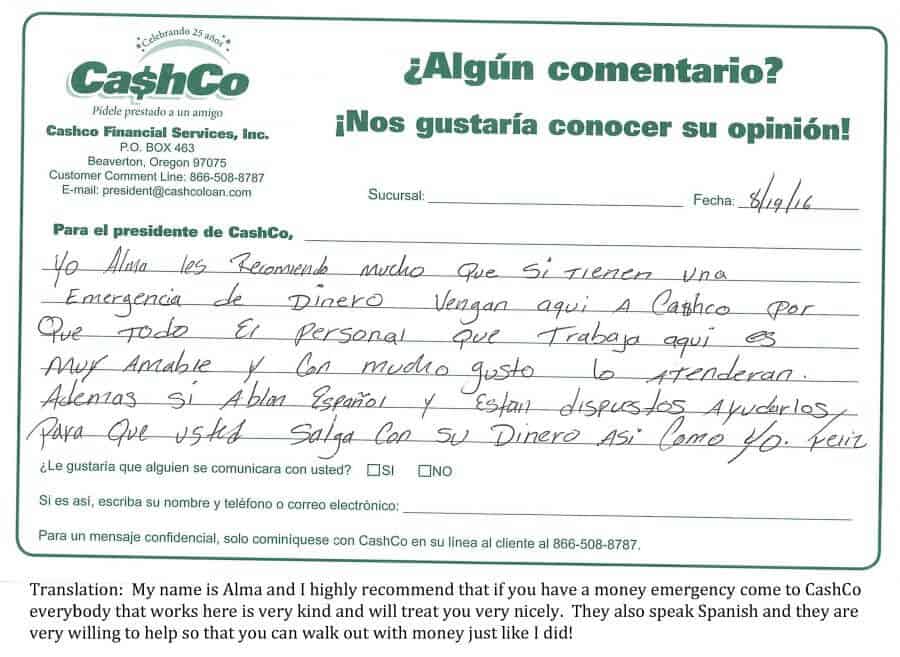 Celebrando 25 años
Ca$hCo
Pídele prestado a un amigo
Cashco Financial Services, Inc.
P.O. BOX 463
Beaverton, Oregon 97075
Customer Comment Line: 866-508-8787
E-mail: president@cashcoloan.com
¿Algún comentario?
¡Nos gustaría conocer su opinión!
Sucursal:
Fecha: 8/19/16
Para el presidente de CashCo,
Yo Alma les Recomiendo mucho Que Si Tienen una
Emergencia de Dinero Vengan aqui A Ca$hco Por
Que Todo El Personal Que Trabaja aqui es
Muy Amable y Con mucho gusto lo Atenderan.
Ademas Si Ablan Español y Estan dispuestos Ayudarlos,
Para Que usted Salga Con Su Dinero Asi Como Yo. Feliz
¿Le gustaría que alguien se comunicara con usted? SI NO
Si es así, escriba su nombre y teléfono o correo electrónico:
Para un mensaje confidencial, solo cominiquese con CashCo en su línea al cliente al 866-508-8787.
Translation: My name is Alma and I highly recommend that if you have a money emergency come to CashCo
everybody that works here is very kind and will treat you very nicely. They also speak Spanish and they are
very willing to help so that you can walk out with money just like I did!